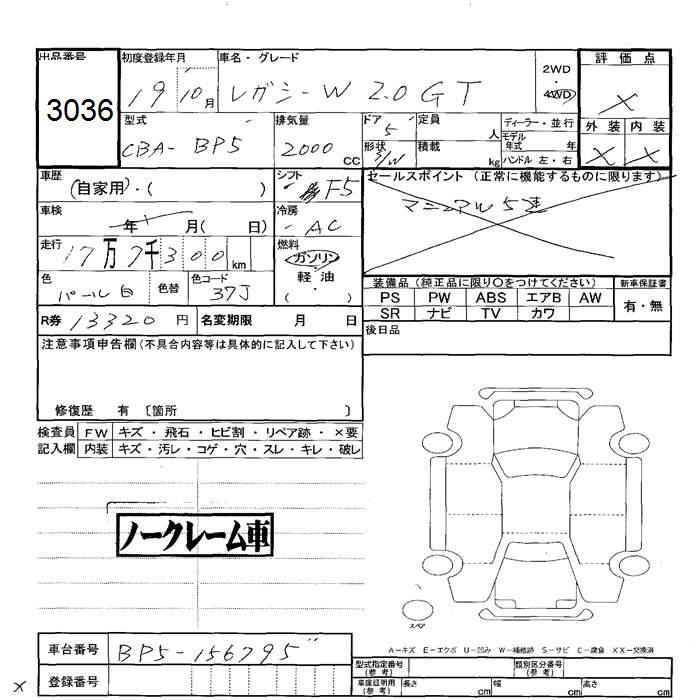 出品番号 初度登録年月 車名・グレード 評価点
3036 19 10月 レガシーW 2.0GT 2WD 4WD X
型式 排気量 ドア 定員 ディーラー・並行 外装 内装
CBA-BP5 2000 CC 5 人 モデル年式 年 X X
形状 S/W 積載 kg ハンドル 左・右
車歴 シフト セールスポイント (正常に機能するものに限ります)
(自家用)・( ) F5
車検 冷房 マニュアル5速
年 月( 日) AC
走行 燃料
17万7千300km ガソリン
色 色替 色コード 軽油
パール白 37J ( ・ )
装備品 (純正品に限り○をつけてください) 新車保証書
PS PW ABS エアB AW 有・無
SR ナビ TV カワ
R券 13320円 名変期限 月 日 後日品
注意事項申告欄 (不具合内容等は具体的に記入して下さい)
修復歴 有 〔箇所 〕
検査員 FW キズ・飛石・ヒビ割・リペア跡・×要
記入欄 内装 キズ・汚レ・コゲ・穴・スレ・キレ・破レ
ノークレーム車
スペア
A-キズ E-エクボ U-凹み W-補修跡 S-サビ C-腐食 XX-交換済
車台番号 BP5-156795
型式指定番号 (参考) 類別区分番号 (参考)
x 登録番号 車庫証明用 (参考) 長さ cm 幅 cm 高さ cm